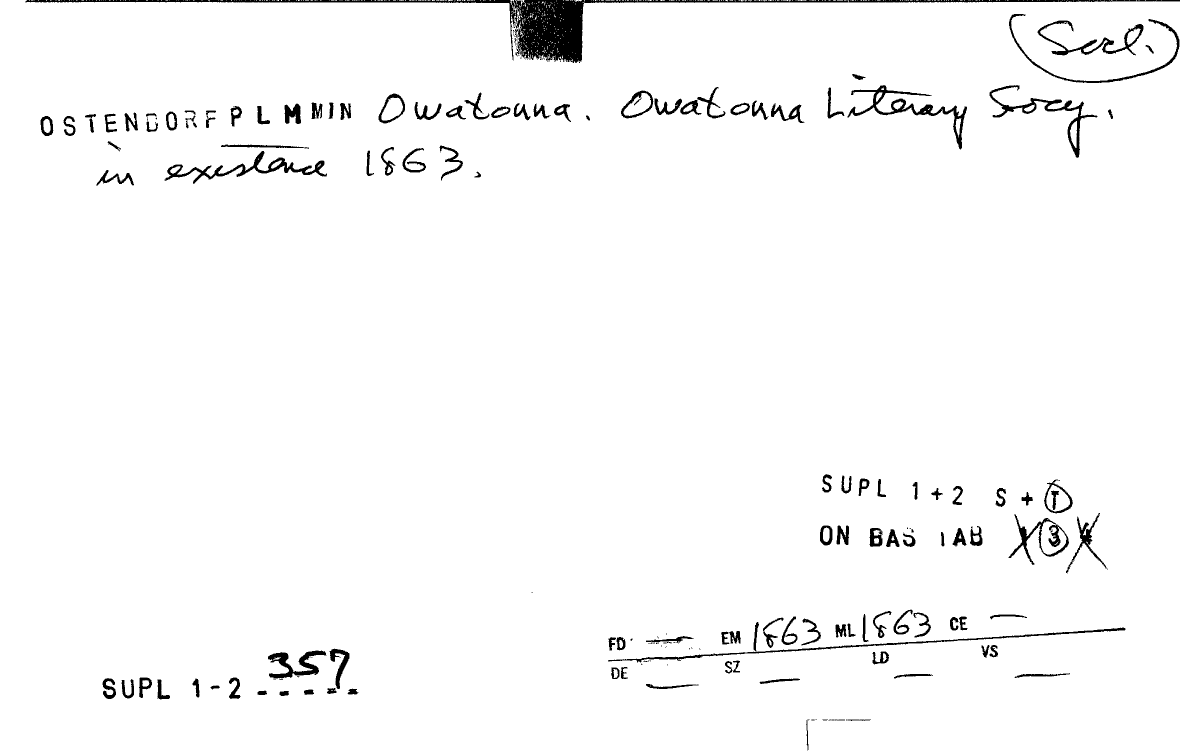 (Socl.)
OSTENDORF P L M MIN Owatonna. Owatonna Literary Socy.
in existence 1863.
SUPL 1+2 S + T
ON BAS TAB 1 3 4
FD — EM 1863 ML 1863 CE —
DE — SZ — LD — VS —
SUPL 1-2 357